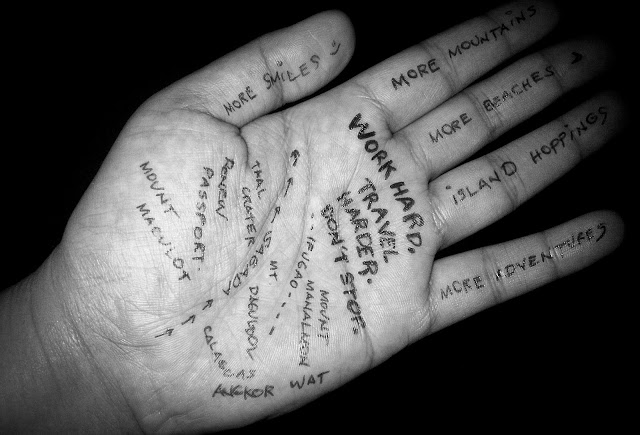 MORE SMILES
MORE MOUNTAINS
MORE BEACHES
ISLAND HOPPINGS
MORE ADVENTURES
WORK HARD.
TRAVEL
HARDER.
DON'T STOP.
MOUNT
MACULOT
RENEW
PASSPORT.
TAAL
CRATER
SAGADA
MT
IFUGAO
MOUNT
MANALMON
ANGKOR WAT